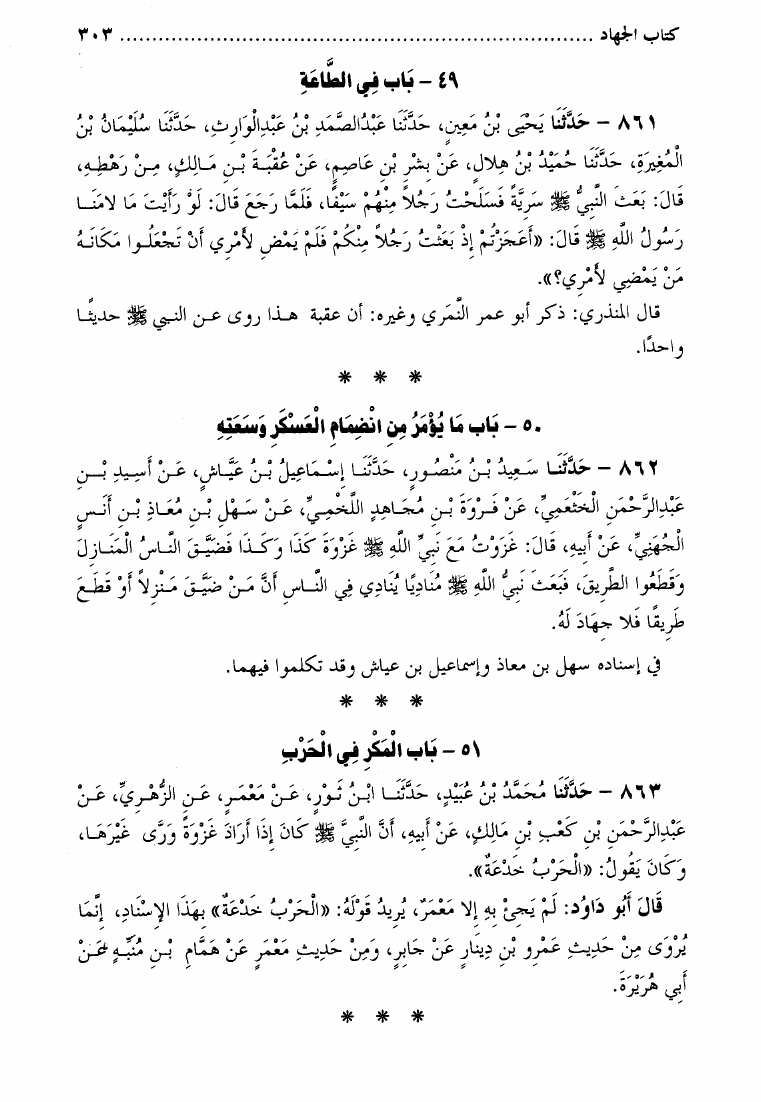 كتاب الجهاد ........................................................................ ٣٠٣
٤٩ – بَاب فِي الطَّاعَةِ
٨٦١ – حَدَّثَنَا يَحْيَى بْنُ مَعِينٍ، حَدَّثَنَا عَبْدُالصَّمَدِ بْنُ عَبْدِالْوَارِثِ، حَدَّثَنَا سُلَيْمَانُ بْنُ
الْمُغِيرَةِ، حَدَّثَنَا حُمَيْدُ بْنُ هِلالٍ، عَنْ بِشْرِ بْنِ عَاصِمٍ، عَنْ عُقْبَةَ بْنِ مَالِكٍ، مِنْ رَهْطِهِ،
قَالَ: بَعَثَ النَّبِيُّ ﷺ سَرِيَّةً فَسَلَحْتُ رَجُلاً مِنْهُمْ سَيْفًا، فَلَمَّا رَجَعَ قَالَ: لَوْ رَأَيْتَ مَا لامَنَا
رَسُولُ اللَّهِ ﷺ قَالَ: «أَعَجَزْتُمْ إِذْ بَعَثْتُ رَجُلاً مِنْكُمْ فَلَمْ يَمْضِ لأَمْرِي أَنْ تَجْعَلُوا مَكَانَهُ
مَنْ يَمْضِي لأَمْرِي؟».
قال المنذري: ذكر أبو عمر النَّمَري وغيره: أن عقبة هذا روى عن النبي ﷺ حديثًا
واحدًا.
* * *
٥٠ – بَاب مَا يُؤْمَرُ مِنِ انْضِمَامِ الْعَسْكَرِ وَسَعَتِهِ
٨٦٢ – حَدَّثَنَا سَعِيدُ بْنُ مَنْصُورٍ، حَدَّثَنَا إِسْمَاعِيلُ بْنُ عَيَّاشٍ، عَنْ أَسِيدِ بْنِ
عَبْدِالرَّحْمَنِ الْخَثْعَمِيِّ، عَنْ فَرْوَةَ بْنِ مُجَاهِدٍ اللَّخْمِيِّ، عَنْ سَهْلِ بْنِ مُعَاذِ بْنِ أَنَسٍ
الْجُهَنِيِّ، عَنْ أَبِيهِ، قَالَ: غَزَوْتُ مَعَ نَبِيِّ اللَّهِ ﷺ غَزْوَةَ كَذَا وَكَذَا فَضَيَّقَ النَّاسُ الْمَنَازِلَ
وَقَطَعُوا الطَّرِيقَ، فَبَعَثَ نَبِيُّ اللَّهِ ﷺ مُنَادِيًا يُنَادِي فِي النَّاسِ أَنَّ مَنْ ضَيَّقَ مَنْزِلاً أَوْ قَطَعَ
طَرِيقًا فَلا جِهَادَ لَهُ.
في إسناده سهل بن معاذ وإسماعيل بن عياش وقد تكلموا فيهما.
* * *
٥١ – بَاب الْمَكْرِ فِي الْحَرْبِ
٨٦٣ – حَدَّثَنَا مُحَمَّدُ بْنُ عُبَيْدٍ، حَدَّثَنَا ابْنُ ثَوْرٍ، عَنْ مَعْمَرٍ، عَنِ الزُّهْرِيِّ، عَنْ
عَبْدِالرَّحْمَنِ بْنِ كَعْبِ بْنِ مَالِكٍ، عَنْ أَبِيهِ، أَنَّ النَّبِيَّ ﷺ كَانَ إِذَا أَرَادَ غَزْوَةً وَرَّى غَيْرَهَا،
وَكَانَ يَقُولُ: «الْحَرْبُ خَدْعَةٌ».
قَالَ أَبُو دَاوُد: لَمْ يَجِئْ بِهِ إِلا مَعْمَرٌ، يُرِيدُ قَوْلَهُ: «الْحَرْبُ خَدْعَةٌ» بِهَذَا الإِسْنَادِ، إِنَّمَا
يُرْوَى مِنْ حَدِيثِ عَمْرِو بْنِ دِينَارٍ عَنْ جَابِرٍ، وَمِنْ حَدِيثِ مَعْمَرٍ عَنْ هَمَّامِ بْنِ مُنَبِّهٍ عَنْ
أَبِي هُرَيْرَةَ.
* * *